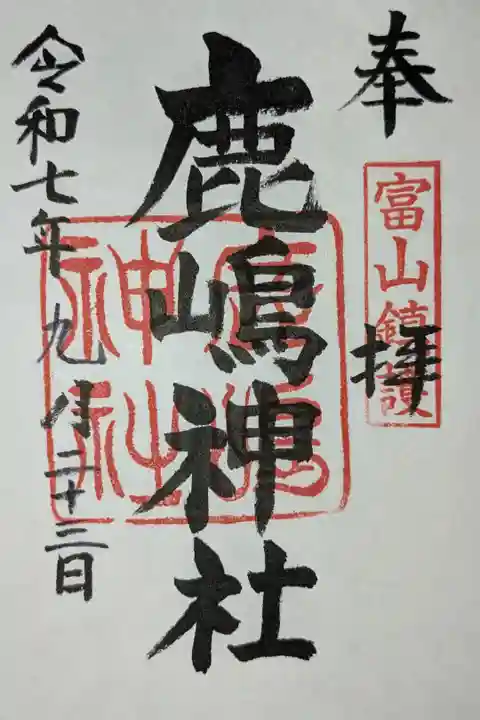 奉拝
富山鎮護
鹿嶋神社
鹿嶋神社
令和七年九月二十三日